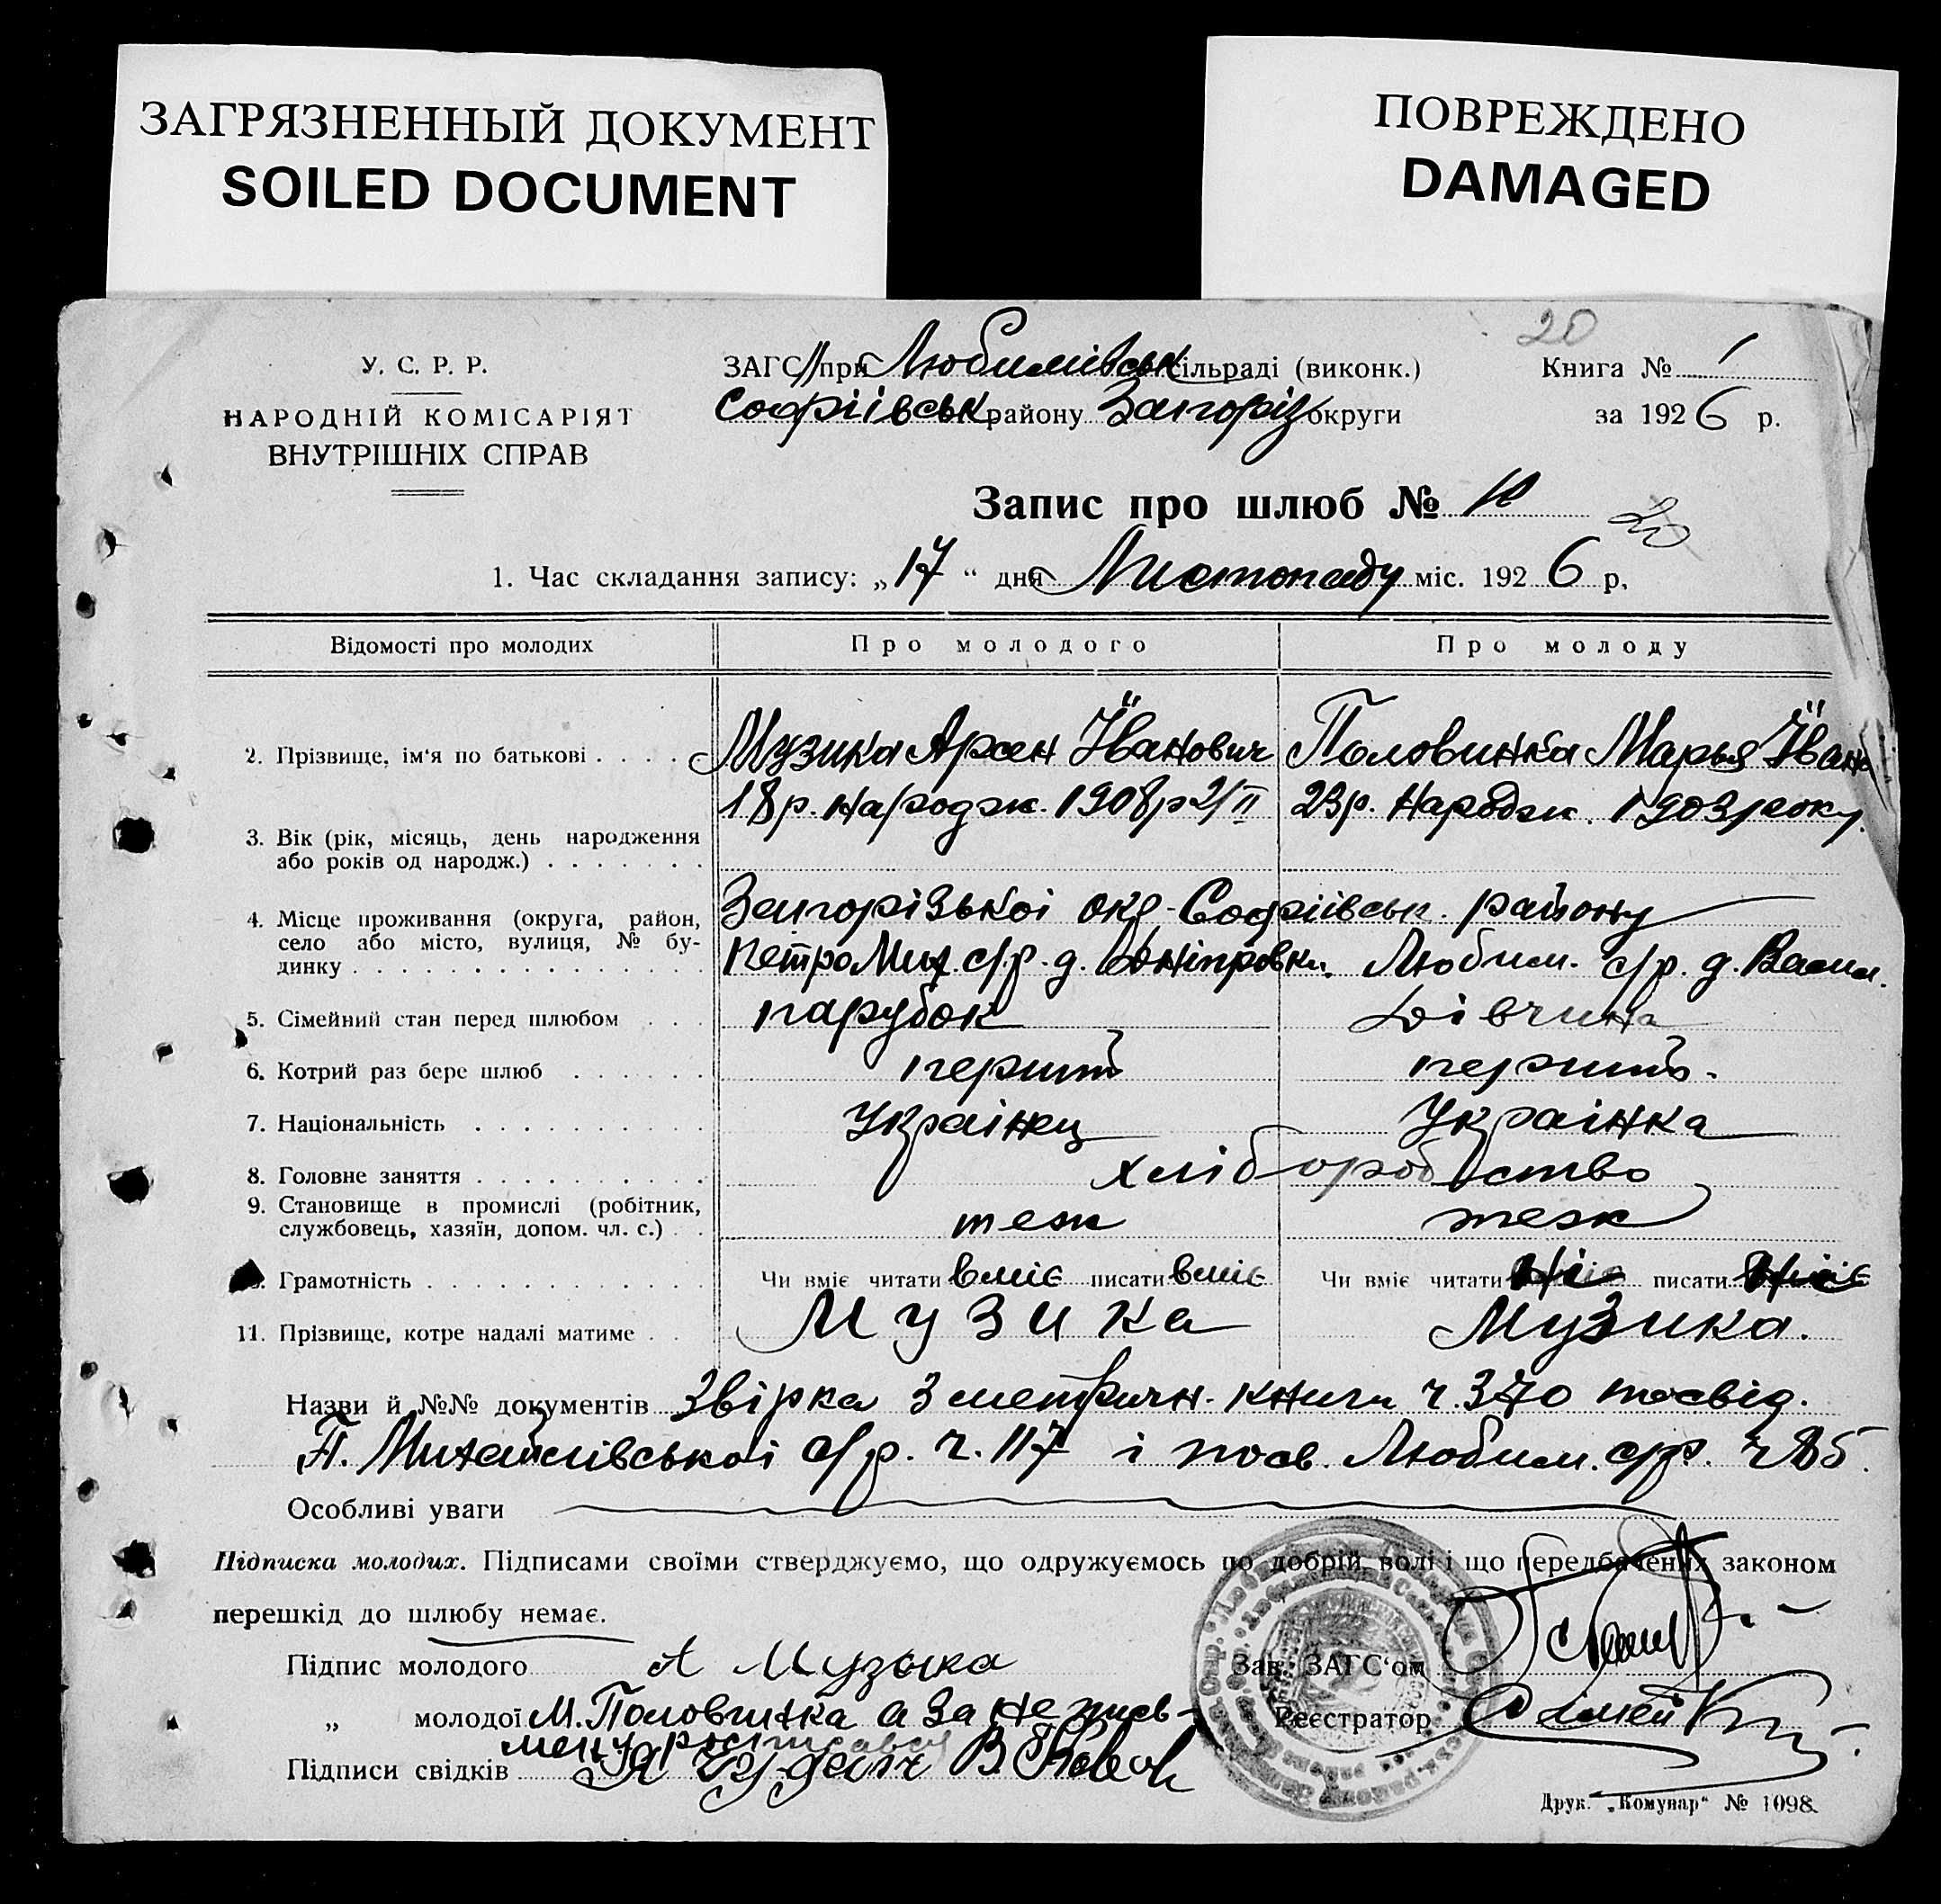 ЗАГРЯЗНЕННЫЙ ДОКУМЕНТ
SOILED DOCUMENT
ПОВРЕЖДЕНО
DAMAGED
20
У. С. Р. Р.
НАРОДНІЙ КОМІСАРІЯТ
ВНУТРІШНІХ СПРАВ
ЗАГС при Любимівськ сільраді (виконк.)
Софіївськ району Запоріз округи
Книга № 1
за 1926 р.
Запис про шлюб № 10
20
1. Час складання запису: „17“ дня Листопаду міс. 1926 р.
Відомості про молодих Про молодого Про молоду
2. Прізвище, ім'я по батькові Музика Арсен Іванович Половинка Марья Івано
18 р. народж. 1908 р 21/II 23 р. народж. 1903 року.
3. Вік (рік, місяць, день народження
або років од народж.)
4. Місце проживання (округа, район, Запорізької окр. Софіївськ. району
село або місто, вулиця, № бу-
динку Петро Мих. с/р. д. Дніпровки. Любим. с/р. д. Васил.
5. Сімейний стан перед шлюбом парубок Дівчина
6. Котрий раз бере шлюб перший перший.
7. Національність Українец Українка
8. Головне заняття хліборобство
9. Становище в промислі (робітник,
службовець, хазяїн, допом. чл. с.) теж теж
Грамотність Чи вміє читати вміє писати вміє Чи вміє читати ні писати
11. Прізвище, котре надалі матиме Музика Музика.
Назви й №№ документів Звірка з метричн. книги ч. 370 посвід.
П. Михайлівської с/р. ч. 117 і посв. Любим. с/р. ч 85.
Особливі уваги
Підписка молодих. Підписами своїми стверджуємо, що одружуємось по добрій волі і що передбачених законом
перешкід до шлюбу немає.
Підпис молодого А Музыка
Зав. ЗАГС'ом
„ молодої М. Половинка а за не пись-
мену росписався
Реєстратор
Підписи свідків
Друк. „Комунар“ № 1098.